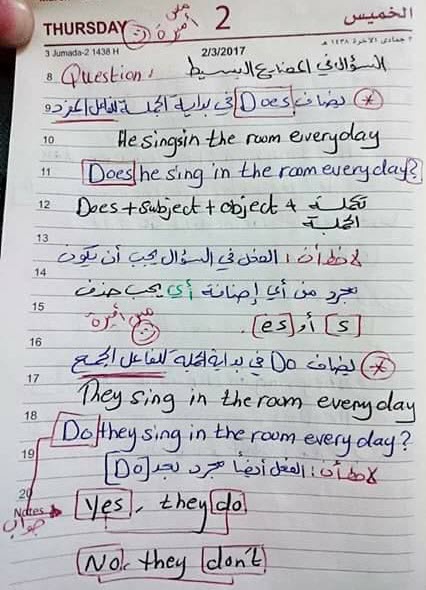 THURSDAY 2 الخميس
مس أميرة
3 Jumada-2 1438 H 2/3/2017 ٣ جمادى الآخرة ١٤٣٨ هـ
8 Question: السؤال في المضارع البسيط
9 يضاف Does في بداية الجملة للفاعل المفرد
10 He sings in the room everyday
11 Does he sing in the room every day?
12 Does + subject + object + تكملة الجملة
13
لاحظ أن: الفعل في السؤال يجب أن يكون
14
مجرد من أي إضافة أي يجب حذف
15
[s] أو [es].
مس أميرة
16
يضاف Do في بداية الجملة للفاعل الجمع
17
They sing in the room every day
18
Do they sing in the room every day?
19
لاحظ أن: الفعل أيضاً مجرد بعد [Do]
20
Notes جواب Yes, they do
No, they don't